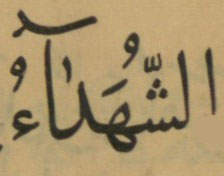 الشُّهَدَآءُ